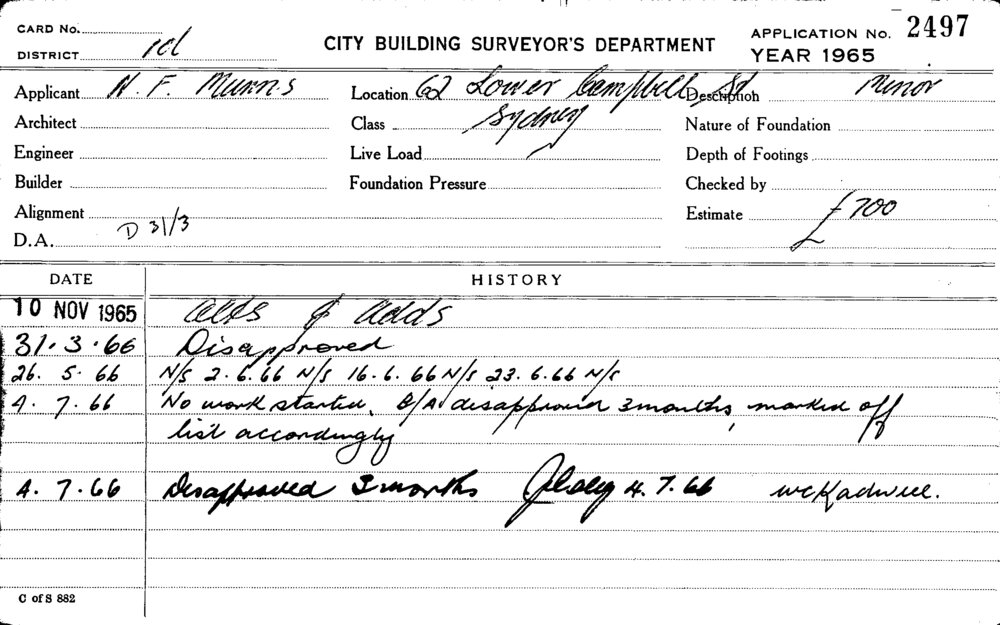 CARD No.
DISTRICT
CITY BUILDING SURVEYOR'S DEPARTMENT
APPLICATION No. 2497
YEAR 1965
Applicant N. F. Munns
Location 62 Lower Campbell St
Sydney
Description Minor
Architect
Class
Nature of Foundation
Engineer
Live Load
Depth of Footings
Builder
Foundation Pressure
Checked by
Alignment
Estimate £700
D.A. D 31/3
DATE HISTORY
10 NOV 1965 Alts & Adds
31.3.66 Disapproved
26. 5. 66 N/S 2.6.66 N/S 16.6.66 N/S 23.6.66 N/S
4. 7. 66 No work started, B/A disapproved 3 months, marked off
list accordingly
4. 7. 66 Disapproved 3 months 4.7.66
C of S 882